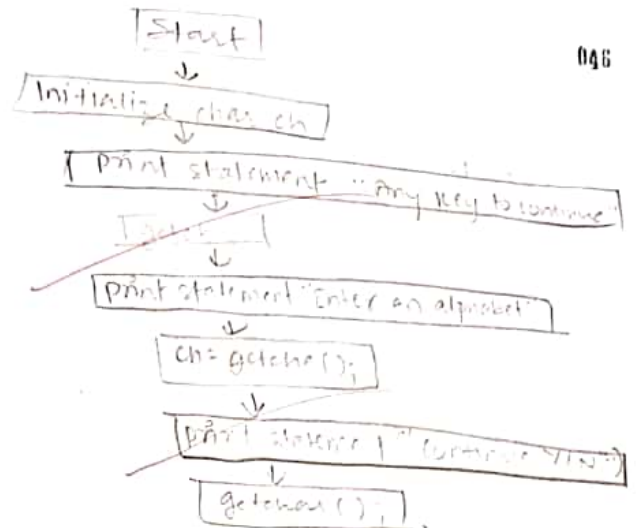 Start
046
Initialize char ch
Print statement "Any key to continue"
Print statement "Enter an alphabet"
ch= getche();
Print "Continue Y/N")
getchar();